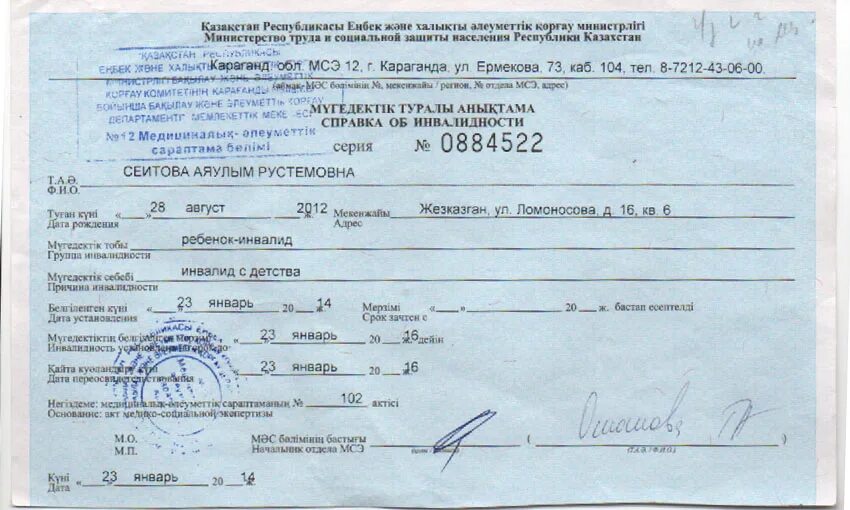 Қазақстан Республикасы Еңбек және халықты әлеуметтік қорғау министрлігі
Министерство труда и социальной защиты населения Республики Казахстан
"ҚАЗАҚСТАН РЕСПУБЛИКАСЫ
ЕҢБЕК ЖӘНЕ
Караганд. обл. МСЭ 12, г. Караганда, ул. Ермекова, 73, каб. 104, тел. 8-7212-43-06-00.
(аймақ-МӘС бөлімінің №, мекенжайы / регион, № отдела МСЭ, адрес)
МИНИСТРЛІГІ БАҚЫЛАУ ЖӘНЕ ӘЛЕУМЕТТІК
ҚОРҒАУ КОМИТЕТІНІҢ ҚАРАҒАНДЫ
БОЙЫНША БАҚЫЛАУ ЖӘНЕ ӘЛЕУМЕТТІК ҚОРҒАУ
ДЕПАРТАМЕНТІ" МЕМЛЕКЕТТІК МЕКЕМЕСІ
№12 Медициналық-әлеуметтік
сараптама бөлімі
МҮГЕДЕКТІК ТУРАЛЫ АНЫҚТАМА
СПРАВКА ОБ ИНВАЛИДНОСТИ
серия № 0884522
Т.А.Ә. СЕИТОВА АЯУЛЫМ РУСТЕМОВНА
Ф.И.О.
Туған күні « » 28 август 2012 ж. Мекенжайы Жезказган, ул. Ломоносова, д. 16, кв. 6
Дата рождения Адрес
Мүгедектік тобы ребенок-инвалид
Группа инвалидности
Мүгедектік себебі инвалид с детства
Причина инвалидности
Белгіленген күні « 23 январь 20 14 Мерзімі « » 20 ж. бастап есептелді
Дата установления Срок зачтен с
Мүгедектіктің белгіленген мерзімі « 23 январь 20 16 дейін
Инвалидность установлена на срок до
Қайта куәландыру күні « 23 январь 20 16
Дата переосвидетельствования
Негіздеме: медициналық-әлеуметтік сараптаманың № 102 актісі
Основание: акт медико-социальной экспертизы
М.О. МӘС бөлімінің бастығы ( )
М.П. Начальник отдела МСЭ (Т.А.Ә./Ф.И.О.)
Күні « 23 январь 20 14
Дата